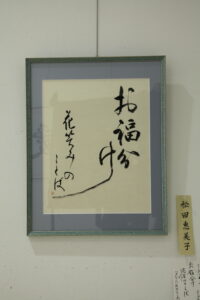 お福分け
花笑みの
ことば
松田恵美子